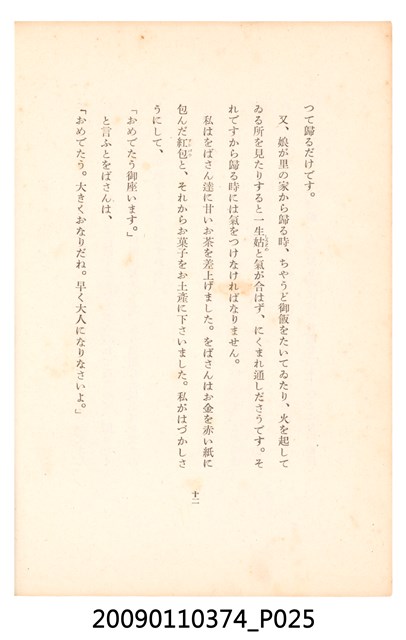 つて歸るだけです。
又、娘が里の家から歸る時、ちやうど御飯をたいてゐたり、火を起して
ゐる所を見たりすると一生姑と氣が合はず、にくまれ通しださうです。そ
れですから歸る時には氣をつけなければなりません。
私はをばさん達に甘いお茶を差上げました。をばさんはお金を赤い紙に
包んだ紅包と、それからお菓子をお土産に下さいました。私がはづかしさ
うにして、
「おめでたう御座います。」
と言ふとをばさんは、
「おめでたう。大きくおなりだね。早く大人になりなさいよ。」
十二
20090110374_P025